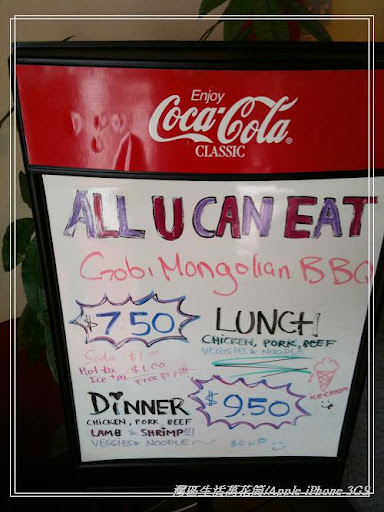 Enjoy
Coca-Cola
CLASSIC
ALL U CAN EAT
Gobi Mongolian BBQ
$7.50 LUNCH!
CHICKEN, PORK, BEEF
VEGGIES & NOODLE
Soda : $1.00
Hot tea $1.00
Ice tea Free
ICE CREAM
DINNER $9.50
CHICKEN, PORK BEEF
LAMB & SHRIMP!!!
VEGGIES & NOODLE
SOUP
灣區生活萬花筒/Apple iPhone 3GS